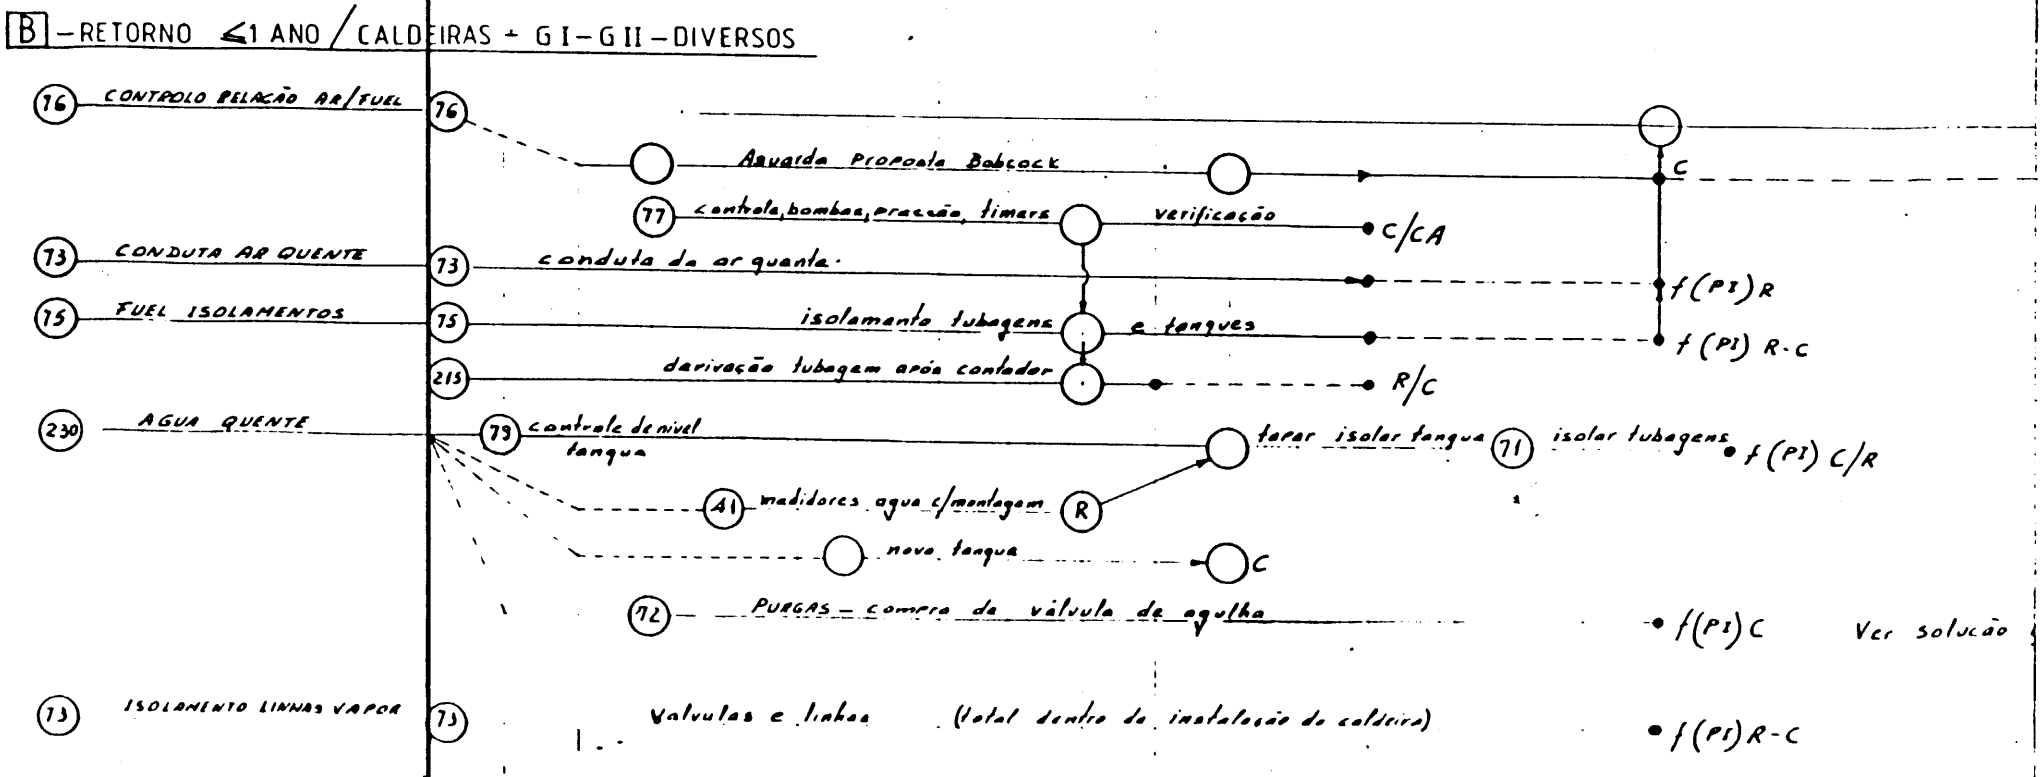 B - RETORNO ≤1 ANO / CALDEIRAS + G I - G II - DIVERSOS
76 CONTROLO RELAÇÃO AR/FUEL 76
Aguarda Proposta Babcock C
77 controle, bombas, pressão, timers verificação C/CA
73 CONDUTA AR QUENTE 73 conduta de ar quente. f(PI) R
75 FUEL ISOLAMENTOS 75 isolamento tubagens e tanques f(PI) R-C
215 derivação tubagem após contador R/C
230 AGUA QUENTE 79 controle de nivel tapar isolar tanque 71 isolar tubagens f(PI) C/R
tanque
41 medidores agua c/montagem R
novo tanque C
72 PURGAS - compra de válvula de agulha f(PI) C Ver solução
73 ISOLAMENTO LINHAS VAPOR 73 Valvulas e linhas (total dentro da instalação da caldeira) f(PI) R-C